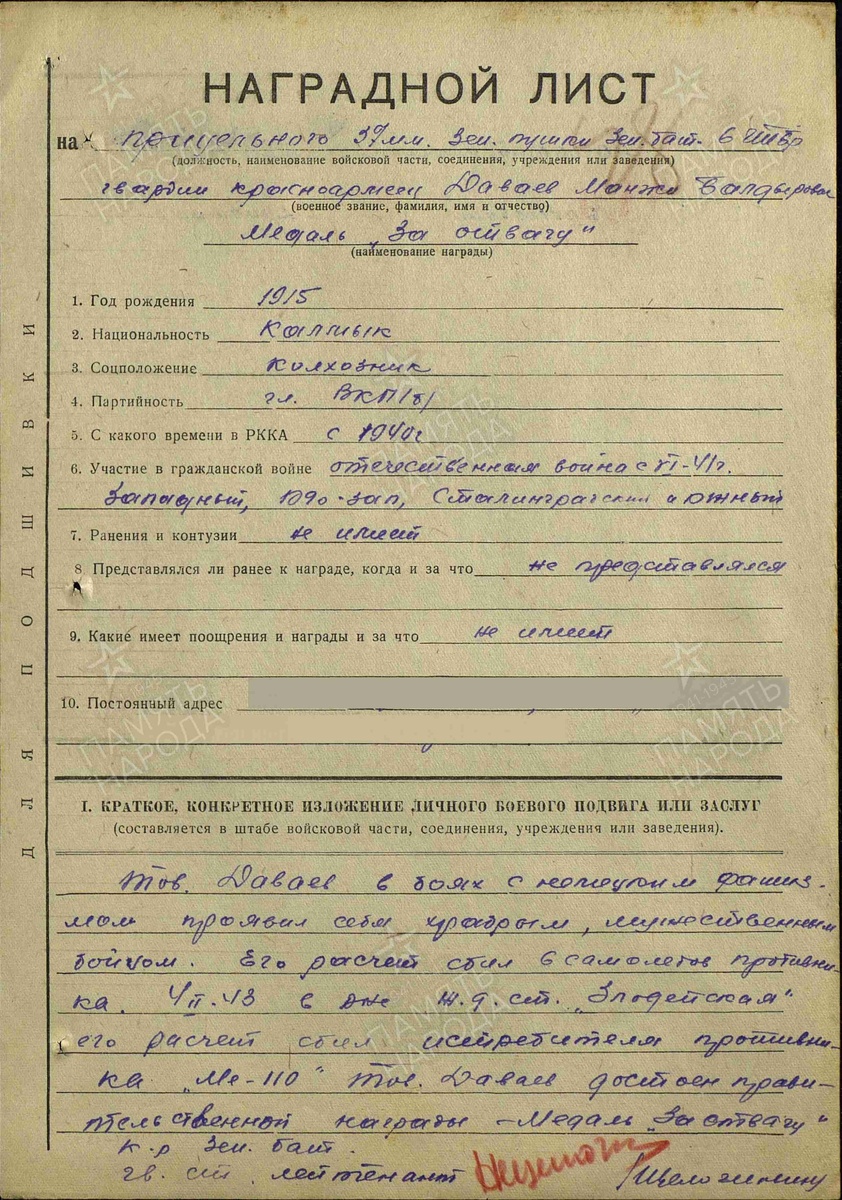 НАГРАДНОЙ ЛИСТ
на прицельного 37 мм. Зен. пушки Зен. бат. 6
(должность, наименование войсковой части, соединения, учреждения или заведения)
гвардии красноармеец Даваев Манжи
(военное звание, фамилия, имя и отчество)
Медаль „За отвагу"
(наименование награды)
1. Год рождения 1915
2. Национальность Калмык
3. Соцположение Колхозник
4. Партийность чл. ВКП/б/
5. С какого времени в РККА с 1940г
6. Участие в гражданской войне отечественная война с VI-41г.
Западный, Юго-зап, Сталинградский и южный
7. Ранения и контузии не имеет
8 Представлялся ли ранее к награде, когда и за что не представлялся
9. Какие имеет поощрения и награды и за что не имеет
10. Постоянный адрес
I. КРАТКОЕ, КОНКРЕТНОЕ ИЗЛОЖЕНИЕ ЛИЧНОГО БОЕВОГО ПОДВИГА ИЛИ ЗАСЛУГ
(составляется в штабе войсковой части, соединения, учреждения или заведения).
Тов. Даваев в боях с немецким фашиз-
мом проявил себя храбрым, мужественным
бойцом. Его расчет сбил 6 самолетов противни-
ка. 4 II.43 в р-не ж.д.ст. „Злодейская"
его расчет сбил истребителя противни-
ка „Ме-110" Тов. Даваев достоен прави-
тельственной награды – Медаль „За отвагу"
к-р Зен. бат.
гв. ст. лейтенант
ДЛЯ ПОДШИВКИ
ПАМЯТЬ НАРОДА